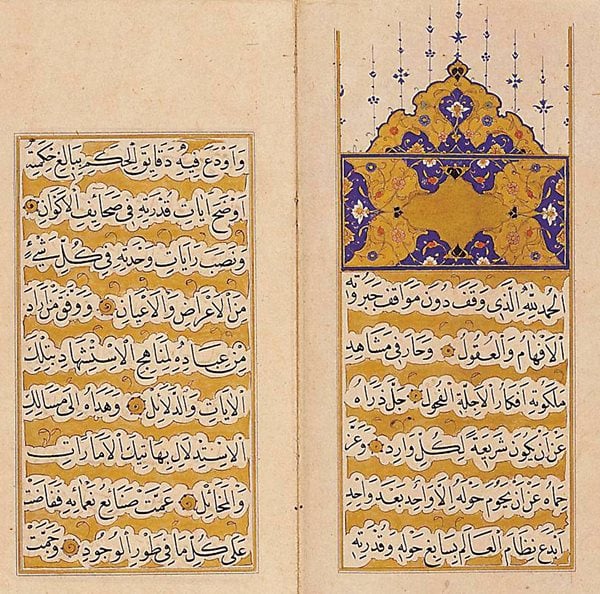 الحمد لله الذى وقف دون مواقف جبروته
الافهام والعقول وحار فى مشاهد
ملكوته افكار الاجلة الفحول جل ذراه
عن ان يكون شريعة لكل وارد وعز
حماه عن ان يحوم حوله الا واحد بعد واحد
ابدع نظام العالم بسابغ حوله وقدرته
واودع فيه دقايق الحكم ببالغ حكمته
اوضح ايات قدرته فى صحايف الاكوان
ونصب رايات وحدته فى كل شىء
من الاعراض والاعيان ووفق من اراد
من عباده لمناهج الاستشهاد بتلك
الايات والدلائل وهداه الى مسالك
الاستدلال بهاتيك الامارات
والمخائل عمت صنائع نعمائه ففاضت
على كل ما فى طور الوجود وجمت